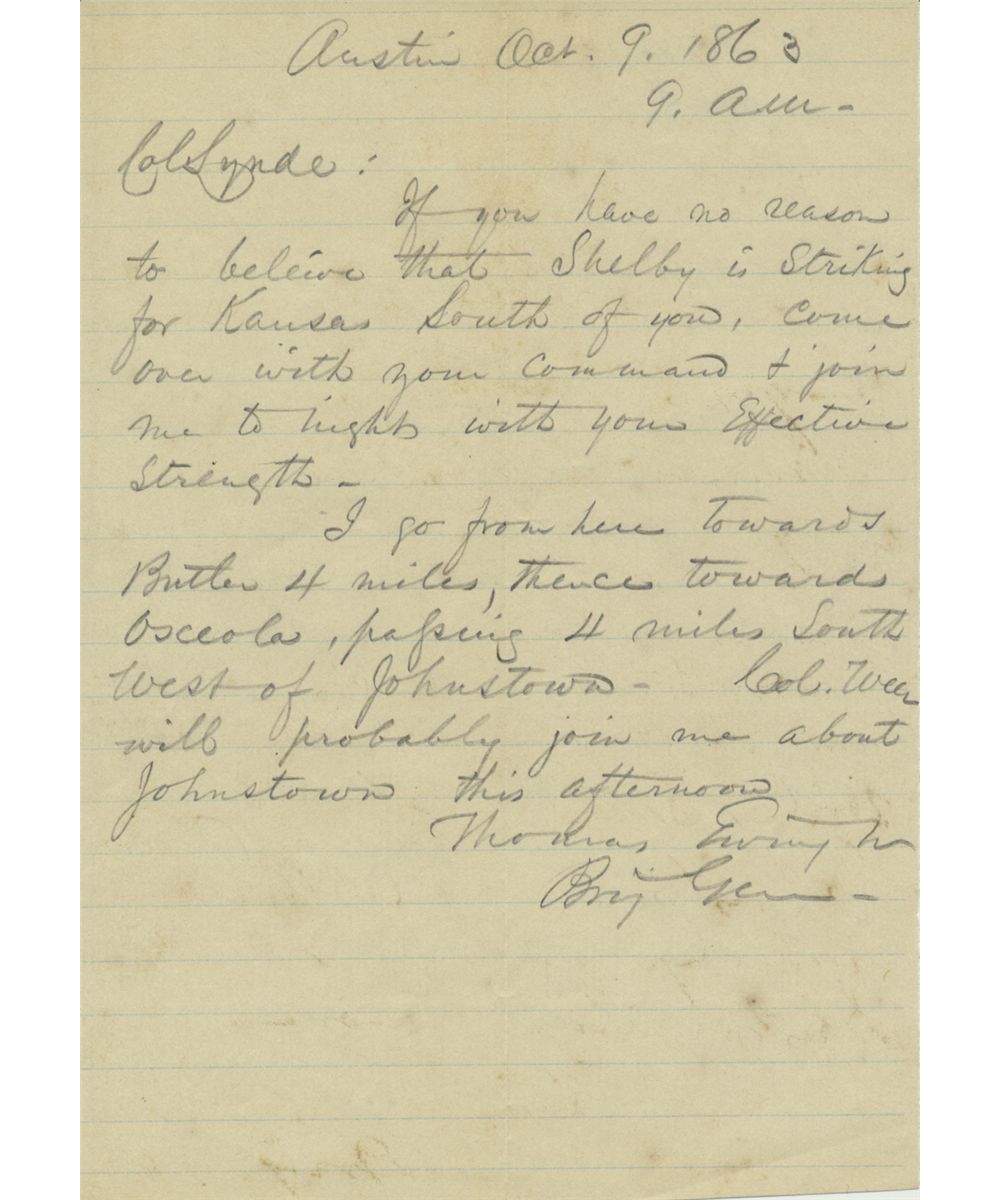 Austin Oct. 9. 1863
9. AM -
Col Lynde :
If you have no reason
to beleive that Shelby is Striking
for Kansas South of you, come
over with your command & join
me to night with your Effective
Strength -
I go from here towards
Butler 4 miles, thence towards
Osceola, passing 4 miles South
West of Johnstown - Col. Weer
will probably join me about
Johnstown this afternoon
Thomas Ewing Jr
Brig Gen -